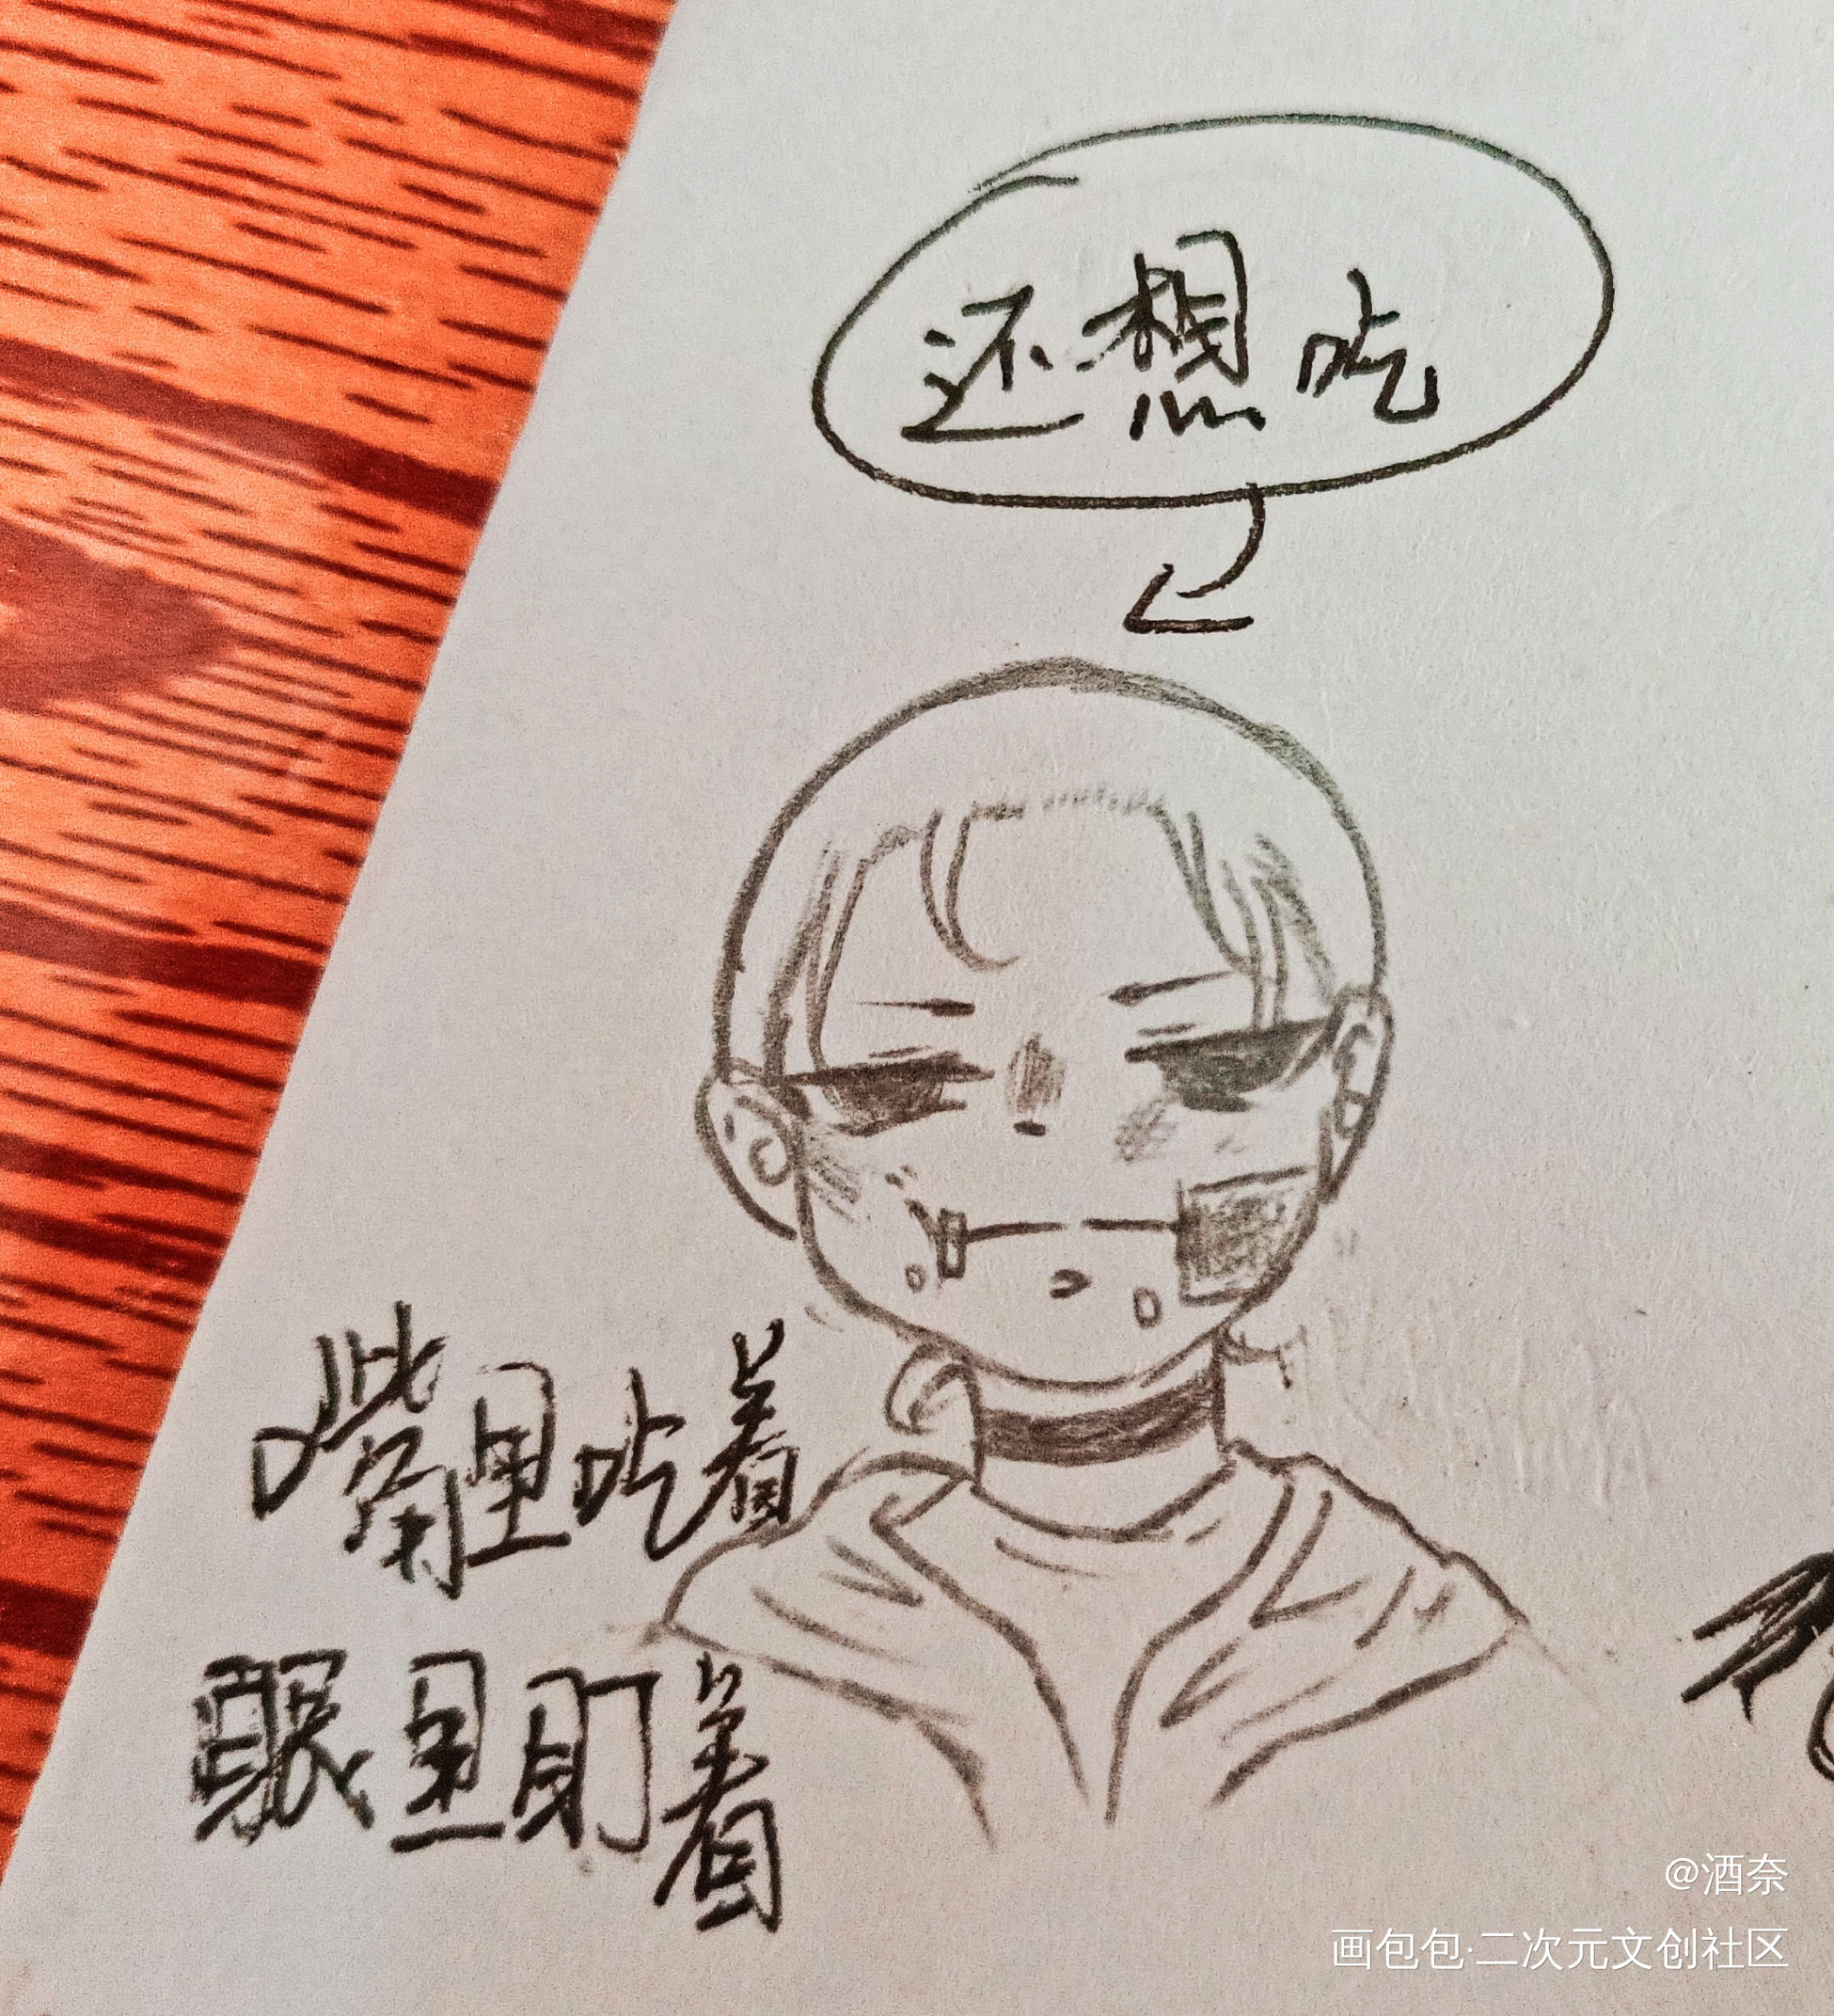 还想吃
嘴里吃着
眼里盯着
@酒奈
画包包·二次元文创社区